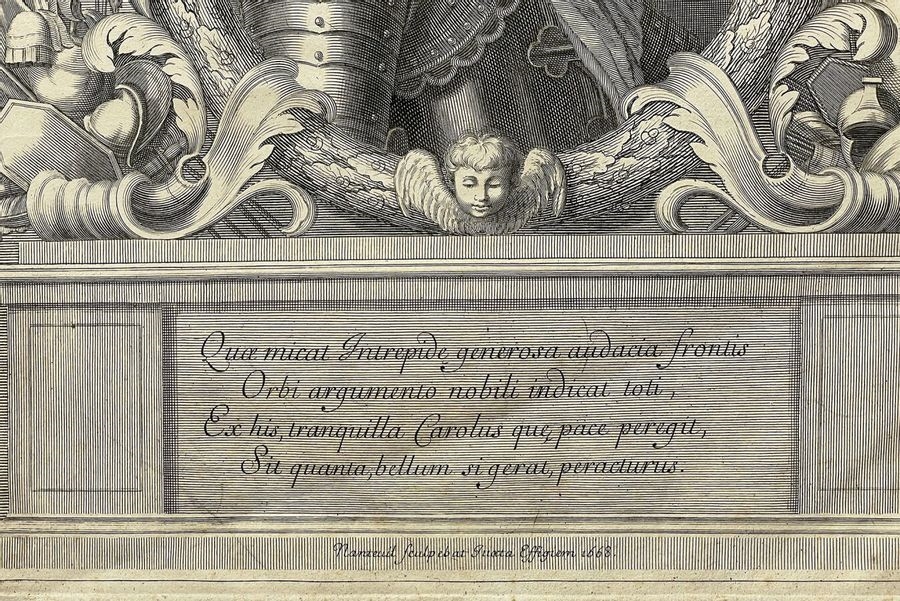 Quæ micat Intrepidę generosa audacia frontis
Orbi argumento nobili indicat toti,
Ex his, tranquilla Carolus quę, pace peregit,
Sit quanta, bellum si gerat, peracturus.
Nanteuil sculpebat Iuxta Effigiem 1668.